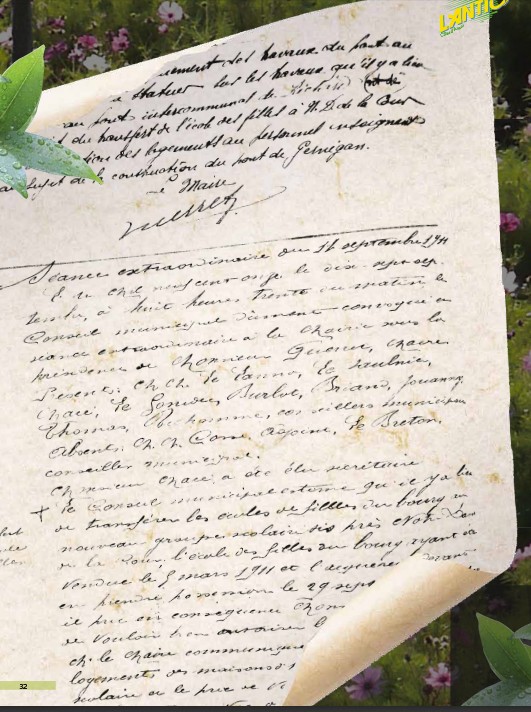 LANTIC
uement des travaux du pont au
statuer sur les travaux qu'il y a lieu
au pont intercommunal
du transfert de l'école des filles à N.D. de la Cour
tion des logements au personnel enseignant
au sujet de la construction du pont de Gernégan.
Le Maire
Séance extraordinaire du 16 septembre 1911
L'an mil neuf cent onze le dix-sept sep
tembre, à huit heures trente du matin le
Conseil municipal dûment convoqué en
séance extraordinaire à la Mairie sous la
présidence de Monsieur Guerret, Maire.
Présents: M.M. Le Fanno, Le Saulnie,
Chacé, Le Gonidec, Burlot, Briand, Jouanny,
Thomas, conseillers municipaux
Absents M.M. Corre, adjoint, Le Breton,
conseiller municipal.
Monsieur Chacé a été élu secrétaire
+ Le Conseil municipal estime qu'il y a lieu
de transférer les écoles de filles du bourg au
nouveau groupe scolaire sis près Notre Dame
de la Cour, l'école des filles du bourg ayant été
vendue le 5 mars 1911 et l'acquéreur
en prendre possession le 29 sept
il prie en conséquence Mons
de vouloir bien autoriser l
M. le Maire communique
logements des maisons d'
scolaire de le prix de
32